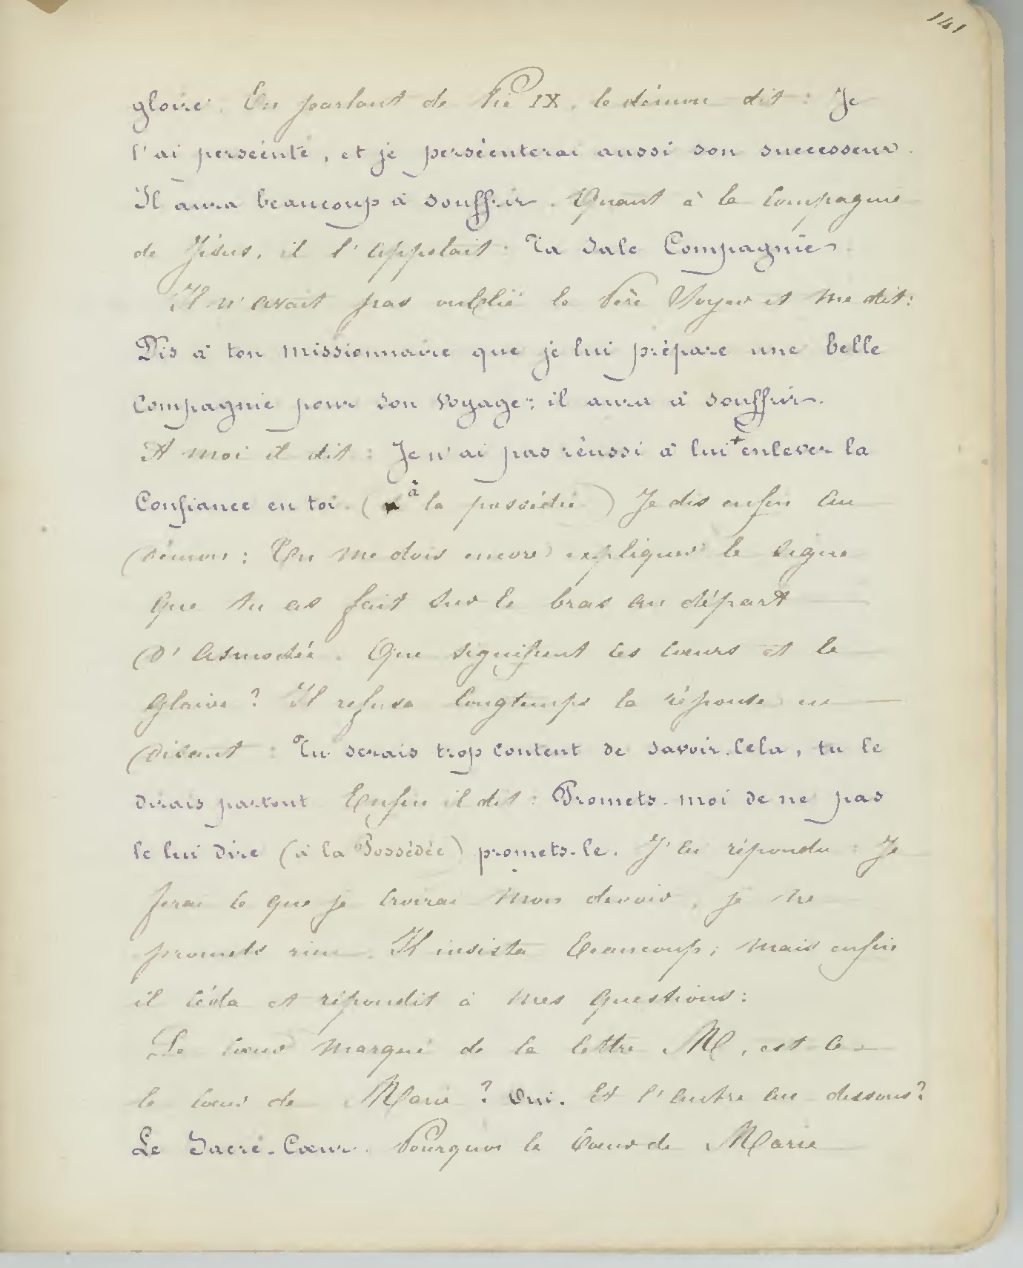 141
gloire. En parlant de Pie IX, le démon dit : Je
l'ai persécuté, et je persécuterai aussi son successeur.
Il aura beaucoup à souffrir. Quant à la Compagnie
de Jésus, il l'appelait : Ta sale Compagnie.
Il n'avait pas oublié le Père Voyer et me dit :
Dis à ton missionnaire que je lui prépare une belle
Compagnie pour son voyage ; il aura à souffrir.
A moi il dit : Je n'ai pas réussi à lui + enlever la
Confiance en toi. (à la possédée) Je dis enfin au
démon : Tu me dois encore expliquer le signe
que tu as fait sur le bras au départ
d'Asmodée. Que signifient les cœurs et le
glaive ? Il refusa longtemps la réponse en
disant : Tu serais trop content de savoir cela, tu le
dirais partout. Enfin il dit : Promets-moi de ne pas
le lui dire (à la Possédée) promets-le. J'ai répondu : Je
ferai ce que je croirai mon devoir, je ne
promets rien. Il insista beaucoup ; mais enfin
il céda et répondit à mes questions :
Le cœur marqué de la lettre M, est-ce
le cœur de Marie ? Oui. Et l'autre au-dessous ?
Le Sacré-Cœur. Pourquoi le Cœur de Marie